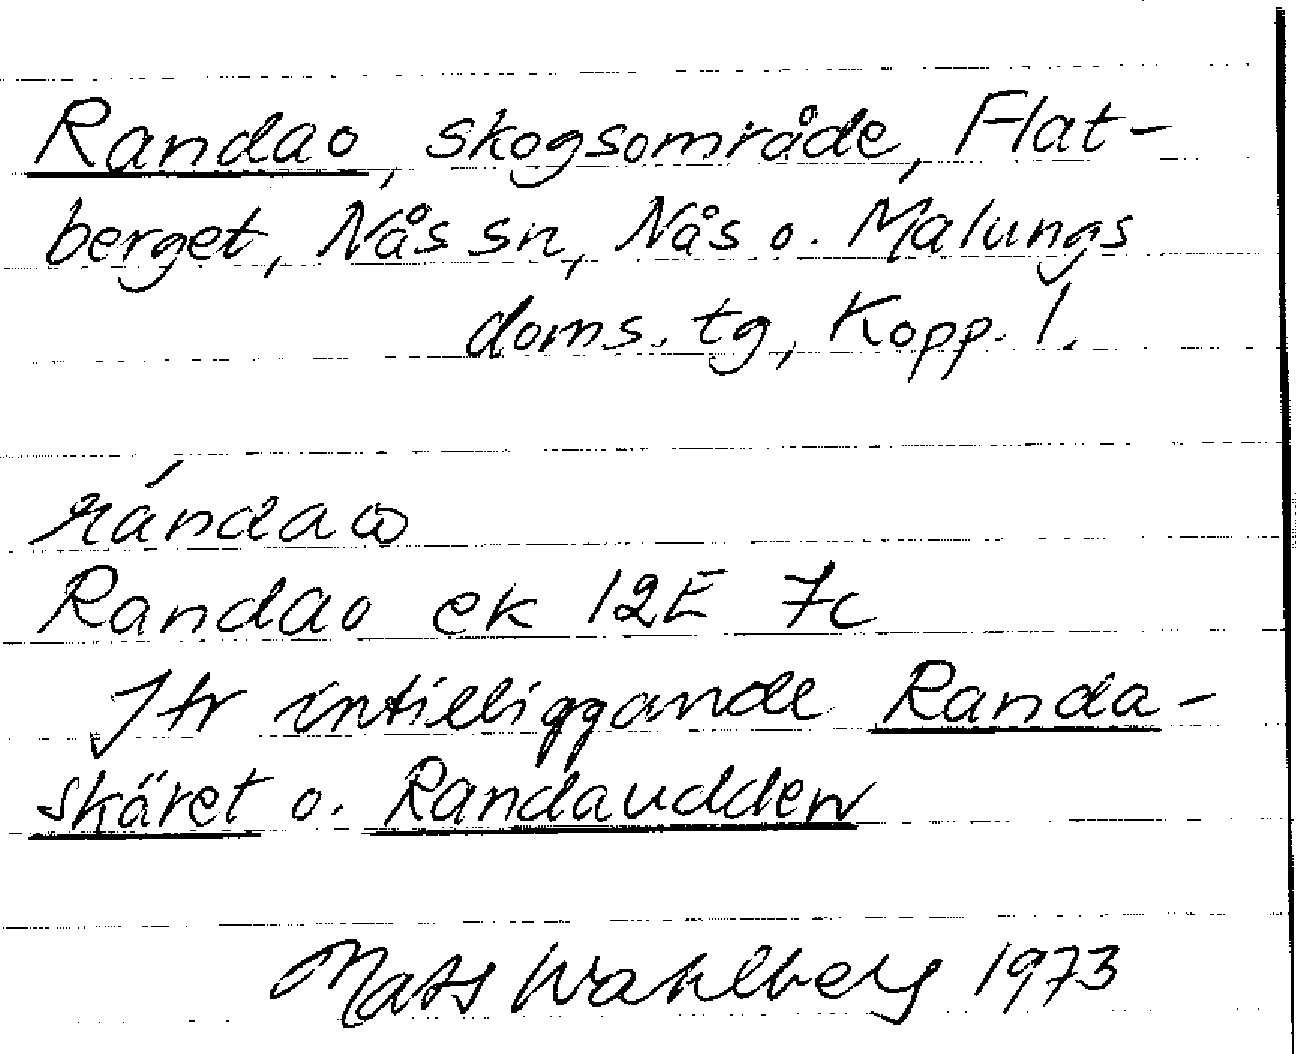 Randao, skogsområde, Flat-
berget, Nås sn, Nås o. Malungs
doms. tg, Kopp. l.
rándaꝏ
Randao ek 12E 7c
Jfr intilliggande Randa-
skäret o. Randaudden
Mats Wahlberg 1973